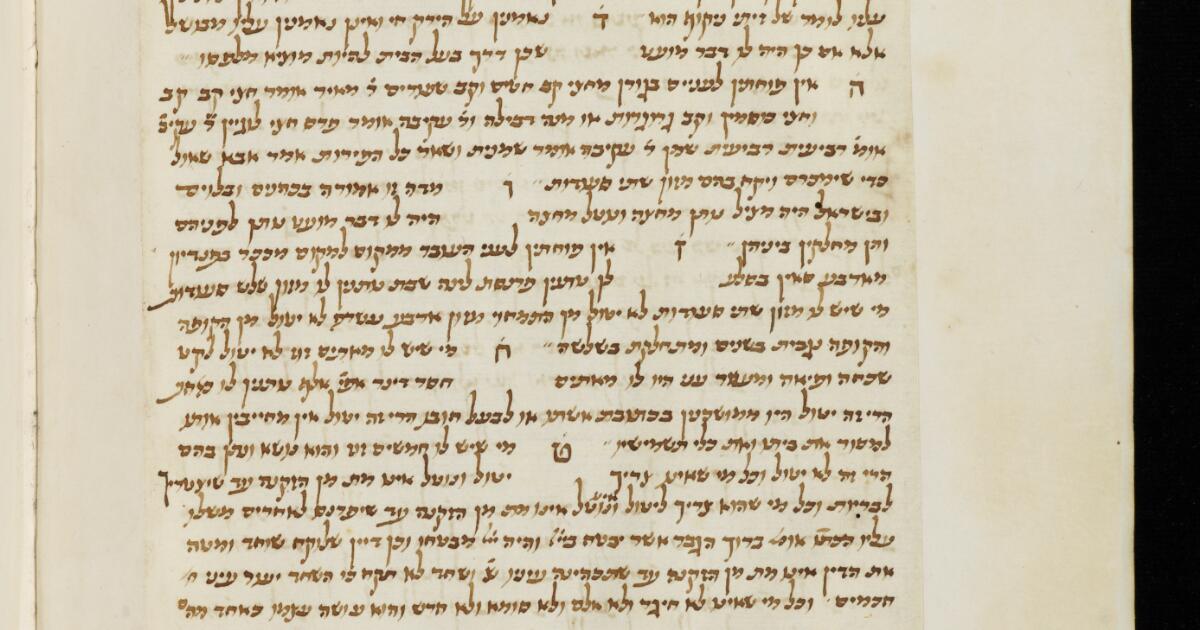 עליו לומר של זיתי ניקוף הוא ד נאמנין על הירק חי ואינן נאמנין עליו מבושל
אלא אם כן היה לו דבר מועט שכן דרך בעל הבית להיות מוציא מלפסו
ה אין פוחתין לעניים בגורן מחצי קב חטים וקב שעורים ר מאיר אומר חצי קב קב
וחצי כוסמין וקב גרוגרות או מנה דבילה ור עקיבה אומר פרס חצי לוג יין ר עקיב
אומ רביעית רביעית שמן ר עקיבה אומר שמינית ושאר כל הפירות אמר אבא שאול
כדי שימכרם ויקח בהם מזון שתי סעודות ו מדה זו אמורה בכהנים ובלוים
ובישראל היה מציל נותן מחצה ונוטל מחצה היה לו דבר מועט נותן לפניהם
והן מחלקין ביניהן ז אין פוחתין לעני העובר ממקום למקום מככר בפנדיון
מארבע סאין בסלע לן נותנין פרנסת לינה שבת נותנין לו מזון שלש סעודות
מי שיש לו מזון שתי סעודות לא יטול מן התמחוי מזון ארבע עשרה לא יטול מן הקופה
והקופה נגבית בשנים ומתחלקת בשלשה ח מי שיש לו מאתים זוז לא יטול לקט
שכחה ופיאה ומעשר עני היו לו מאתים חסר דינר אפי אלף נותנין לו כאחת
הרי זה יטול היו ממושכנין בכתובת אשתו או לבעל חובו הרי זה יטול אין מחייבין אותו
למכור את ביתו ואת כלי תשמישיו ט מי שיש לו חמשים זוז והוא נושא ונותן בהם
הרי זה לא יטול וכל מי שאינו צריך יטול ונוטל אינו מת מן הזקנה עד שיצטריך
לבריות וכל מי שהוא צריך ליטול ואינו נוטל אינו מת מן הזקנה עד שיפרנס לאחרים משלו
עליו הכתו אומ ברוך הגבר אשר יבטח ביי והיה יי מבטחו וכן דיין שלוקח שוחד ומטה
את הדין אינו מת מן הזקנה עד שתכהינה עיניו שנ ושחד לא תקח כי השחד יעור עיני ח
חכמים וכל מי שאינו לא חיגר ולא אלם ולא סומא ולא חרש והוא עושה עצמו כאחד מה